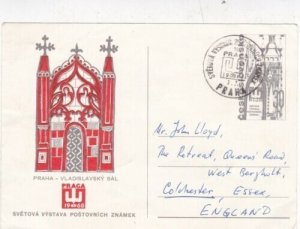 SVĚTOVÁ VÝSTAVA
PRAHA
PRAHA
Mr. John Lloyd,
The Retreat, Queens Road,
West Bergholt,
Colchester, Essex,
ENGLAND
PRAHA - VLADISLAVSKÝ SÁL
PRAGA
1968
SVĚTOVÁ VÝSTAVA POŠTOVNÍCH ZNÁMEK